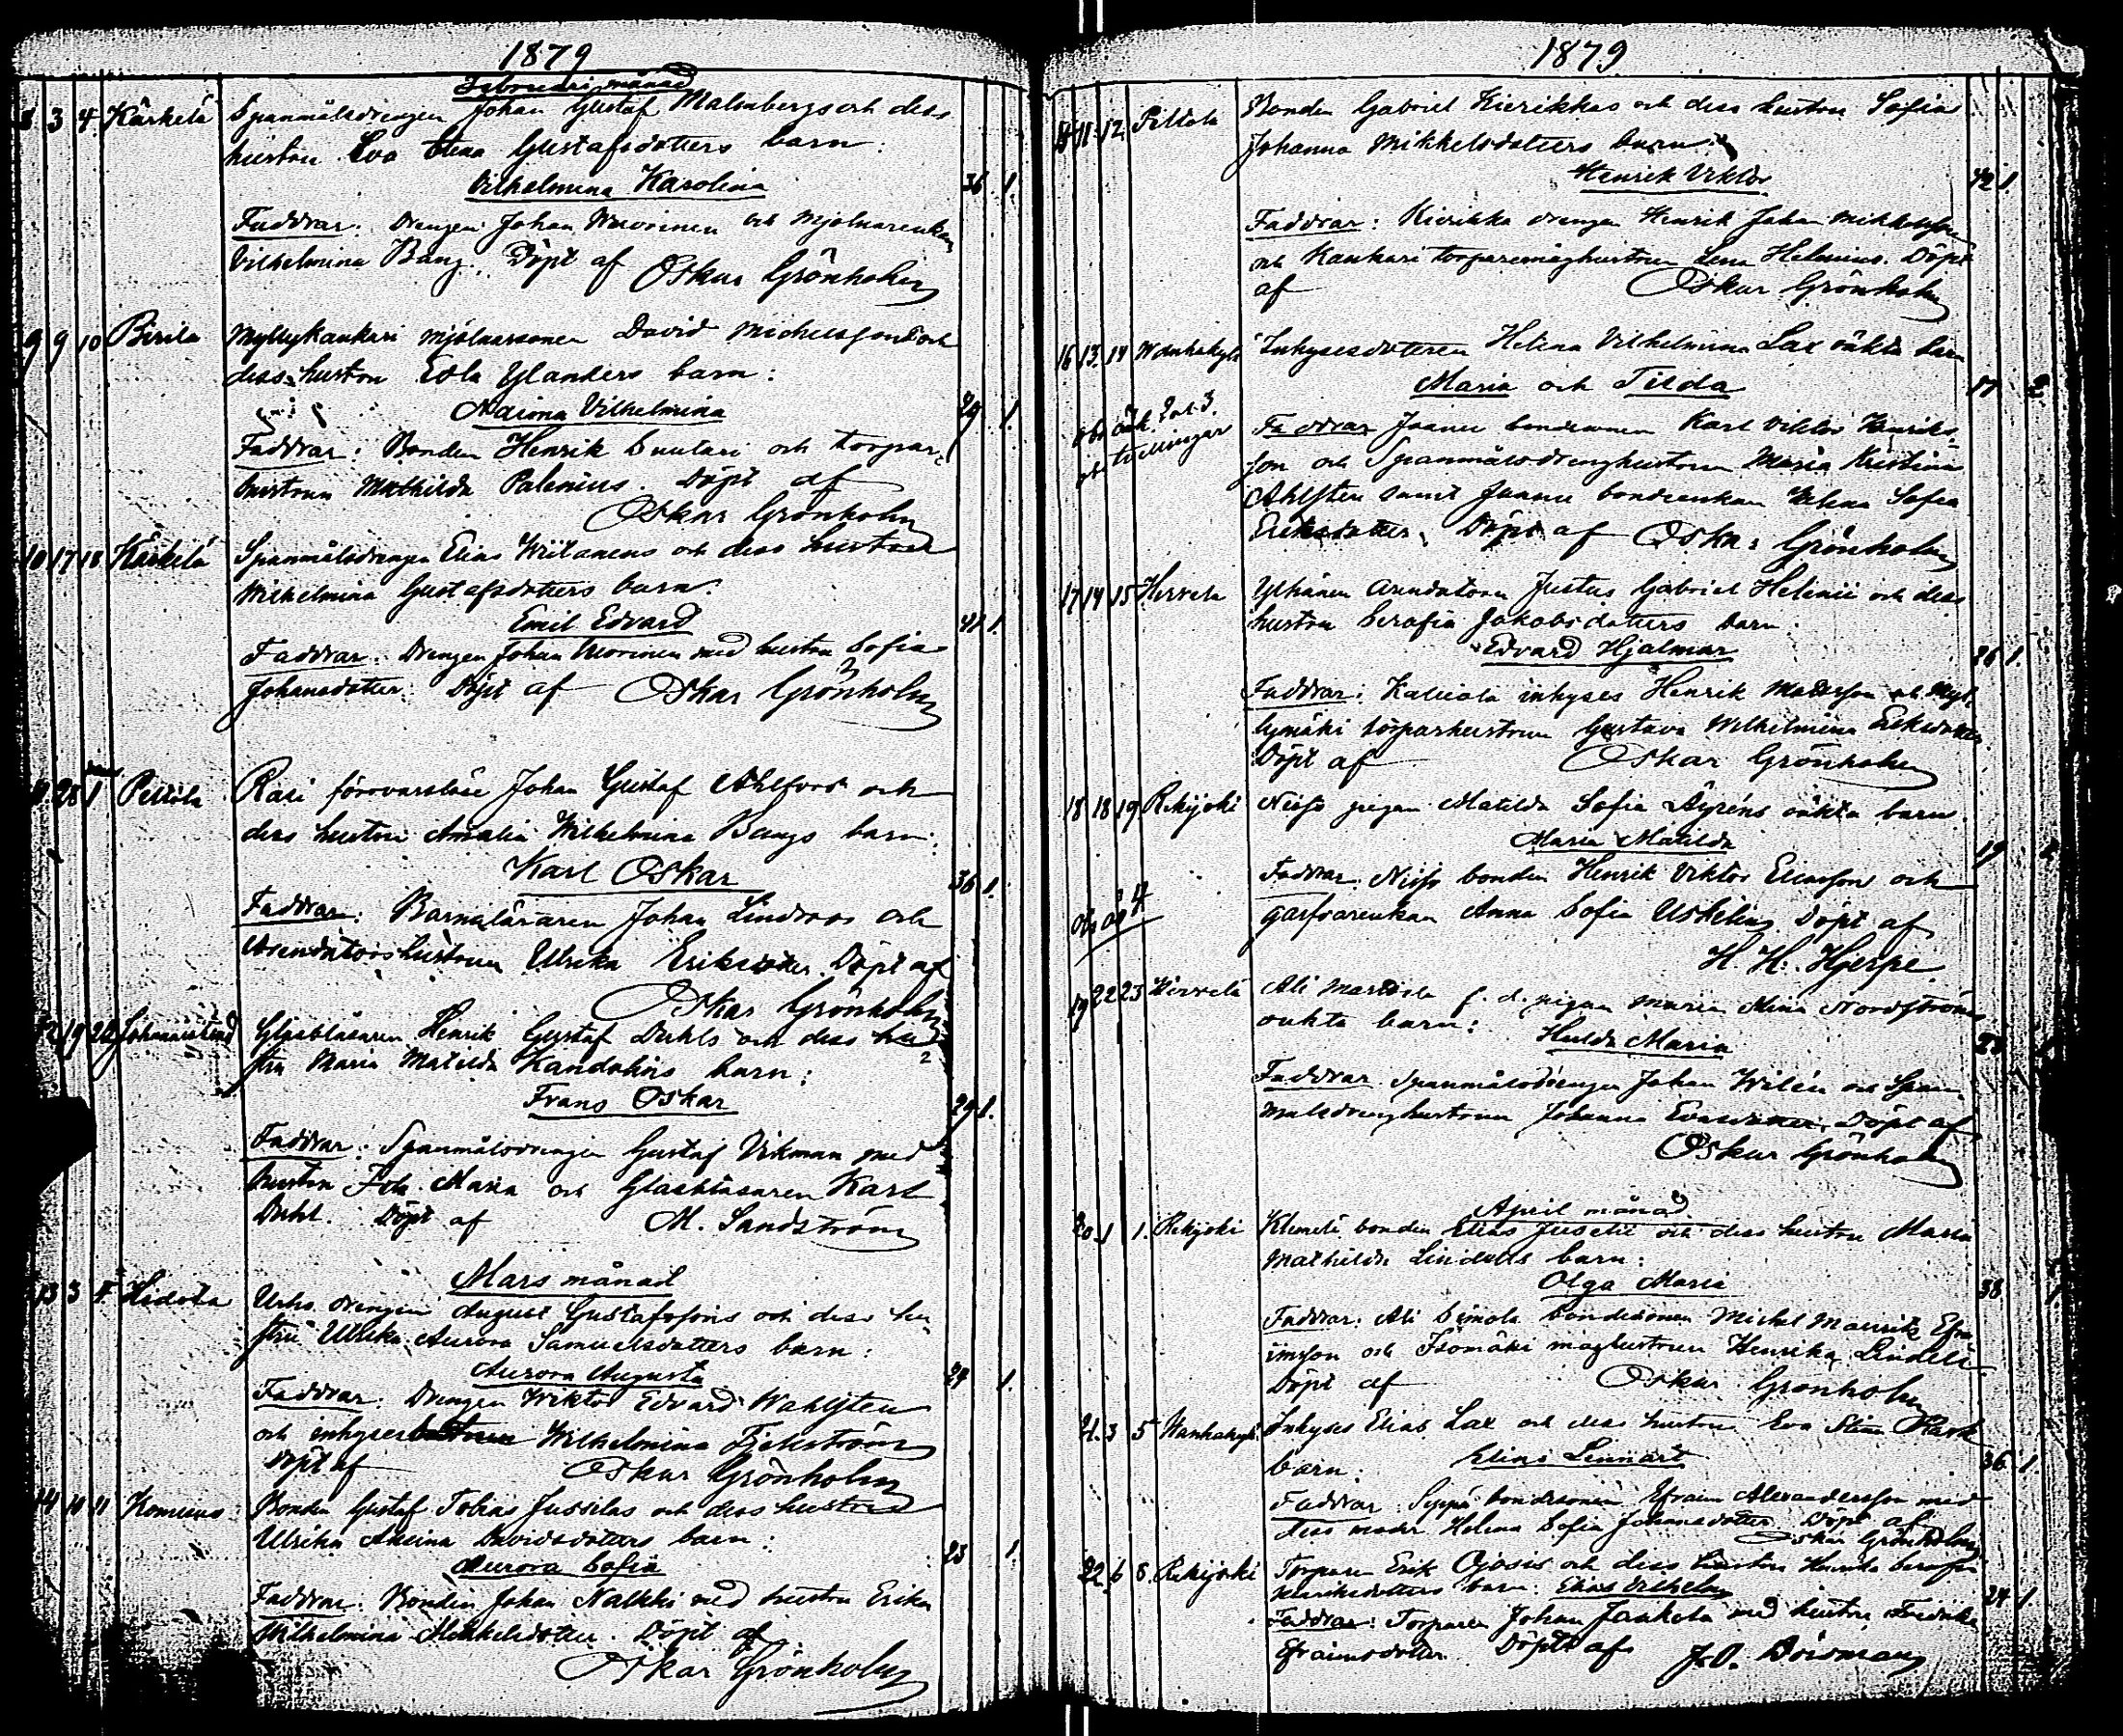 1879
Februari månad
8 3 4 Kärkelä Spanmålsdrengen Johan Gustaf Malmbergs och dess
hustru Eva Stina Gustafsdotters barn:
Vilhelmina Karolina 36 1.
Faddrar: Drengen Johan Wuorinen och Mjölnarenkan
Vilhelmina Bang. Döpt af Oskar Grönholm
9 9 10 Pirilä Myllykankari mjölnarsonen David Michelssons och
dess hustru Edla Ylanders barn:
Naima Vilhelmina 29 1.
Faddrar: Bonden Henrik Suutari och torpar-
hustrun Mathilda Palenius. Döpt af
Oskar Grönholm
10 17 18 Kärkelä Spanmålsdrengen Elias Wiitanens och dess hustrus
Wilhelmina Gustafsdotters barn.
Emil Edvard 41 1.
Faddrar: Drengen Johan Wuorinen med hustru Sofia
Johansdotter. Döpt af Oskar Grönholm
28 1 Peltola Rasi försvarslöse Johan Gustaf Ahlfors och
dess hustru Amalia Wilhelmina Bangs barn:
Karl Oskar 36 1.
Faddrar: Barnaläraren Johan Lindroos och
Arendatorshustrun Ulrika Eriksdotter. Döpt af
Oskar Grönholm
12 19 22 Johannislund Glasblåsaren Henrik Gustaf Dahls och dess hu-
stru Maria Matilda Kandolins barn:
Frans Oskar 29 1.
Faddrar: Spanmålsdrengen Gustaf Vikman med
hustru Joh. Maria och Glasblåsaren Karl
Dahl. Döpt af M. Sandström
Mars månad
13 3 4 Hidola drengen August Gustafssons och dess hu-
stru Ulrika Aurora Samuelsdotters barn:
Aurora Augusta 24 1.
Faddrar: Drengen Wiktor Edvard Wahlsten
och inhyses Wilhelmina Fickström
Döpt af Oskar Grönholm
14 10 11 Komisuo Bonden Gustaf Tobias Jussilas och dess hustrus
Ulrika Davidsdotters barn:
Aurora Sofia 23 1.
Faddrar: Bonden Johan Nalkki med hustru Erika
Wilhelmina Mikkelsdotter. Döpt af
Oskar Grönholm
1879
11 12 Peltola Bonden Gabriel Kierikkas och dess hustru Sofia
Johanna Mikkelsdotters barn:
Henrik Viktor 42 1.
Faddrar: Kierikka drengen Henrik Johan Mikkelsson
och Kankari torparemåghustrun Lena Helenius. Döpt
af Oskar Grönholm
16 13 14 Wanhakylä Inhysesdottren Helena Vilhelmina Lax oäkta barn
Maria och Tilda 17 2
obs oäk. 2 o 3.
tvillingar
Faddrar Juanu bondsonen Karl Viktor Henriks-
son och Spanmålsdrenghustrun Maria Kristina
Ahlsten samt Juanu bondeenkan Helena Sofia
Eriksdotter. Döpt af Oskar Grönholm
17 14 15 Hirvelä Ylhänen Arendatorn Justus Gabriel Helenii och dess
hustru Serafia Jakobsdotters barn:
Edvard Hjalmar 36 1.
Faddrar: Kallela inhyses Henrik Matsson och Myl-
lymäki torparhustrun Gustava Wilhelmina Eriksdotter
Döpt af Oskar Grönholm
18 18 19 Rekijoki Nisso pigan Matilda Sofia Äyréns oäkta barn
Maria Matilda 19
obs oä 4
Faddrar: Nisso bonden Henrik Viktor Eliasson och
garfvarenkan Anna Sofia Uskelin. Döpt af
H. H. Hjerpe
19 22 23 Hirvelä Ali Marttila f. d. pigan Maria Mina Nordströms
oäkta barn: Hulda Maria 28
Faddrar. Spanmålsdrengen Johan Wilén och Span-
målsdrenghustrun Johanna Evasdotter. Döpt af
Oskar Grönholm
April månad.
20 1 1. Rekijoki Klemelä bonden Elias Juselii och dess hustru Maria
Mathilda Lindells barn:
Olga Maria 38
Faddrar: Ali Simola bondesonen Michel Maurits Efra-
imsson och Isomäki måghustrun Henrika Lindell
Döpt af Oskar Grönholm
21. 3 5 Wanhakylä Inhyses Elias Lax och dess hustru Eva Stina Rask
barn: Elias Lennart 36 1.
Faddrar: Seppä bondesonen Efraim Alexandersson med
dess moder Helena Sofia Johansdotter. Döpt af
Oskar Grönholm
22 6 8. Rekijoki Torparen Erik Ojasis och dess hustru Henrika Serafia
Henriksdotters barn: Elias Vilhelm 24 1.
Faddrar: Torparen Johan Jaakola med hustru Fredrika
Efraimsdotter Döpt af J. O. Dövman